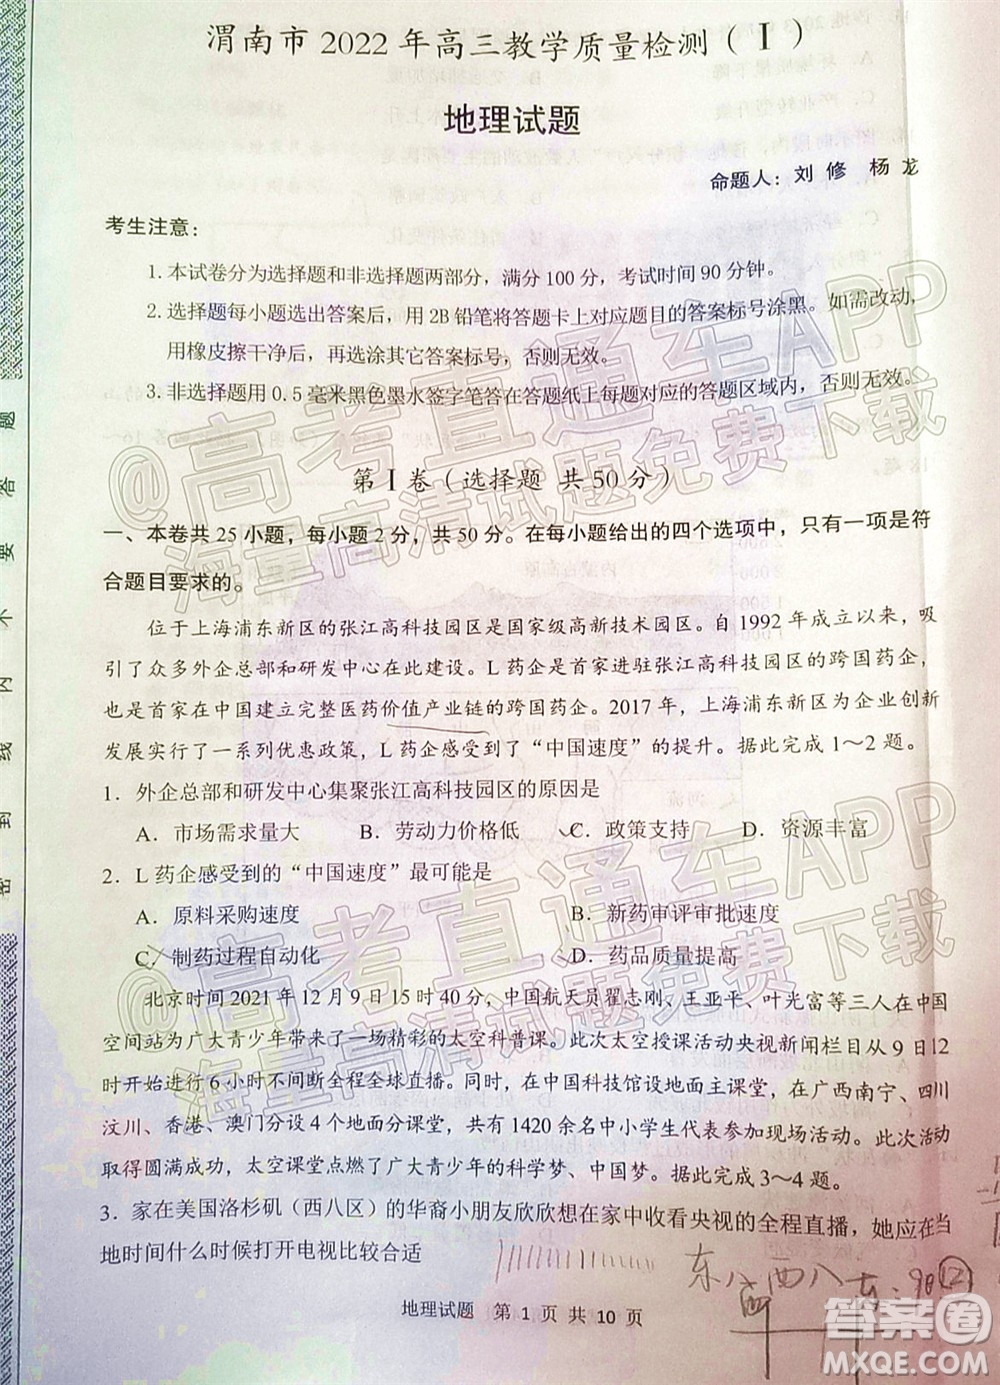 渭南市 2022 年高三教学质量检测（Ⅰ）
地理试题
命题人：刘 修 杨 龙
考生注意：
1. 本试卷分为选择题和非选择题两部分，满分 100 分，考试时间 90 分钟。
2. 选择题每小题选出答案后，用 2B 铅笔将答题卡上对应题目的答案标号涂黑。如需改动，
用橡皮擦干净后，再选涂其它答案标号，否则无效。
3. 非选择题用 0.5 毫米黑色墨水签字笔答在答题纸上每题对应的答题区域内，否则无效。
第Ⅰ卷（选择题 共 50 分）
一、本卷共 25 小题，每小题 2 分，共 50 分。在每小题给出的四个选项中，只有一项是符
合题目要求的。
位于上海浦东新区的张江高科技园区是国家级高新技术园区。自 1992 年成立以来，吸
引了众多外企总部和研发中心在此建设。L 药企是首家进驻张江高科技园区的跨国药企，
也是首家在中国建立完整医药价值产业链的跨国药企。2017 年，上海浦东新区为企业创新
发展实行了一系列优惠政策，L 药企感受到了“中国速度”的提升。据此完成 1～2 题。
1．外企总部和研发中心集聚张江高科技园区的原因是
A．市场需求量大 B．劳动力价格低 C．政策支持 D．资源丰富
2．L 药企感受到的“中国速度”最可能是
A．原料采购速度 B．新药审评审批速度
C．制药过程自动化 D．药品质量提高
北京时间 2021 年 12 月 9 日 15 时 40 分，中国航天员翟志刚、王亚平、叶光富等三人在中国
空间站为广大青少年带来了一场精彩的太空科普课。此次太空授课活动央视新闻栏目从 9 日 12
时开始进行 6 小时不间断全程全球直播。同时，在中国科技馆设地面主课堂，在广西南宁、四川
汶川、香港、澳门分设 4 个地面分课堂，共有 1420 余名中小学生代表参加现场活动。此次活动
取得圆满成功，太空课堂点燃了广大青少年的科学梦、中国梦。据此完成 3～4 题。
3．家在美国洛杉矶（西八区）的华裔小朋友欣欣想在家中收看央视的全程直播，她应在当
地时间什么时候打开电视比较合适
东八 西八 9日 12
地理试题 第 1 页 共 10 页
密 封 线 内 不 要 答 题
@高考直通车APP
海量高清试题免费下载
@高考直通车APP
海量高清试题免费下载
答案圈
MXQE.COM